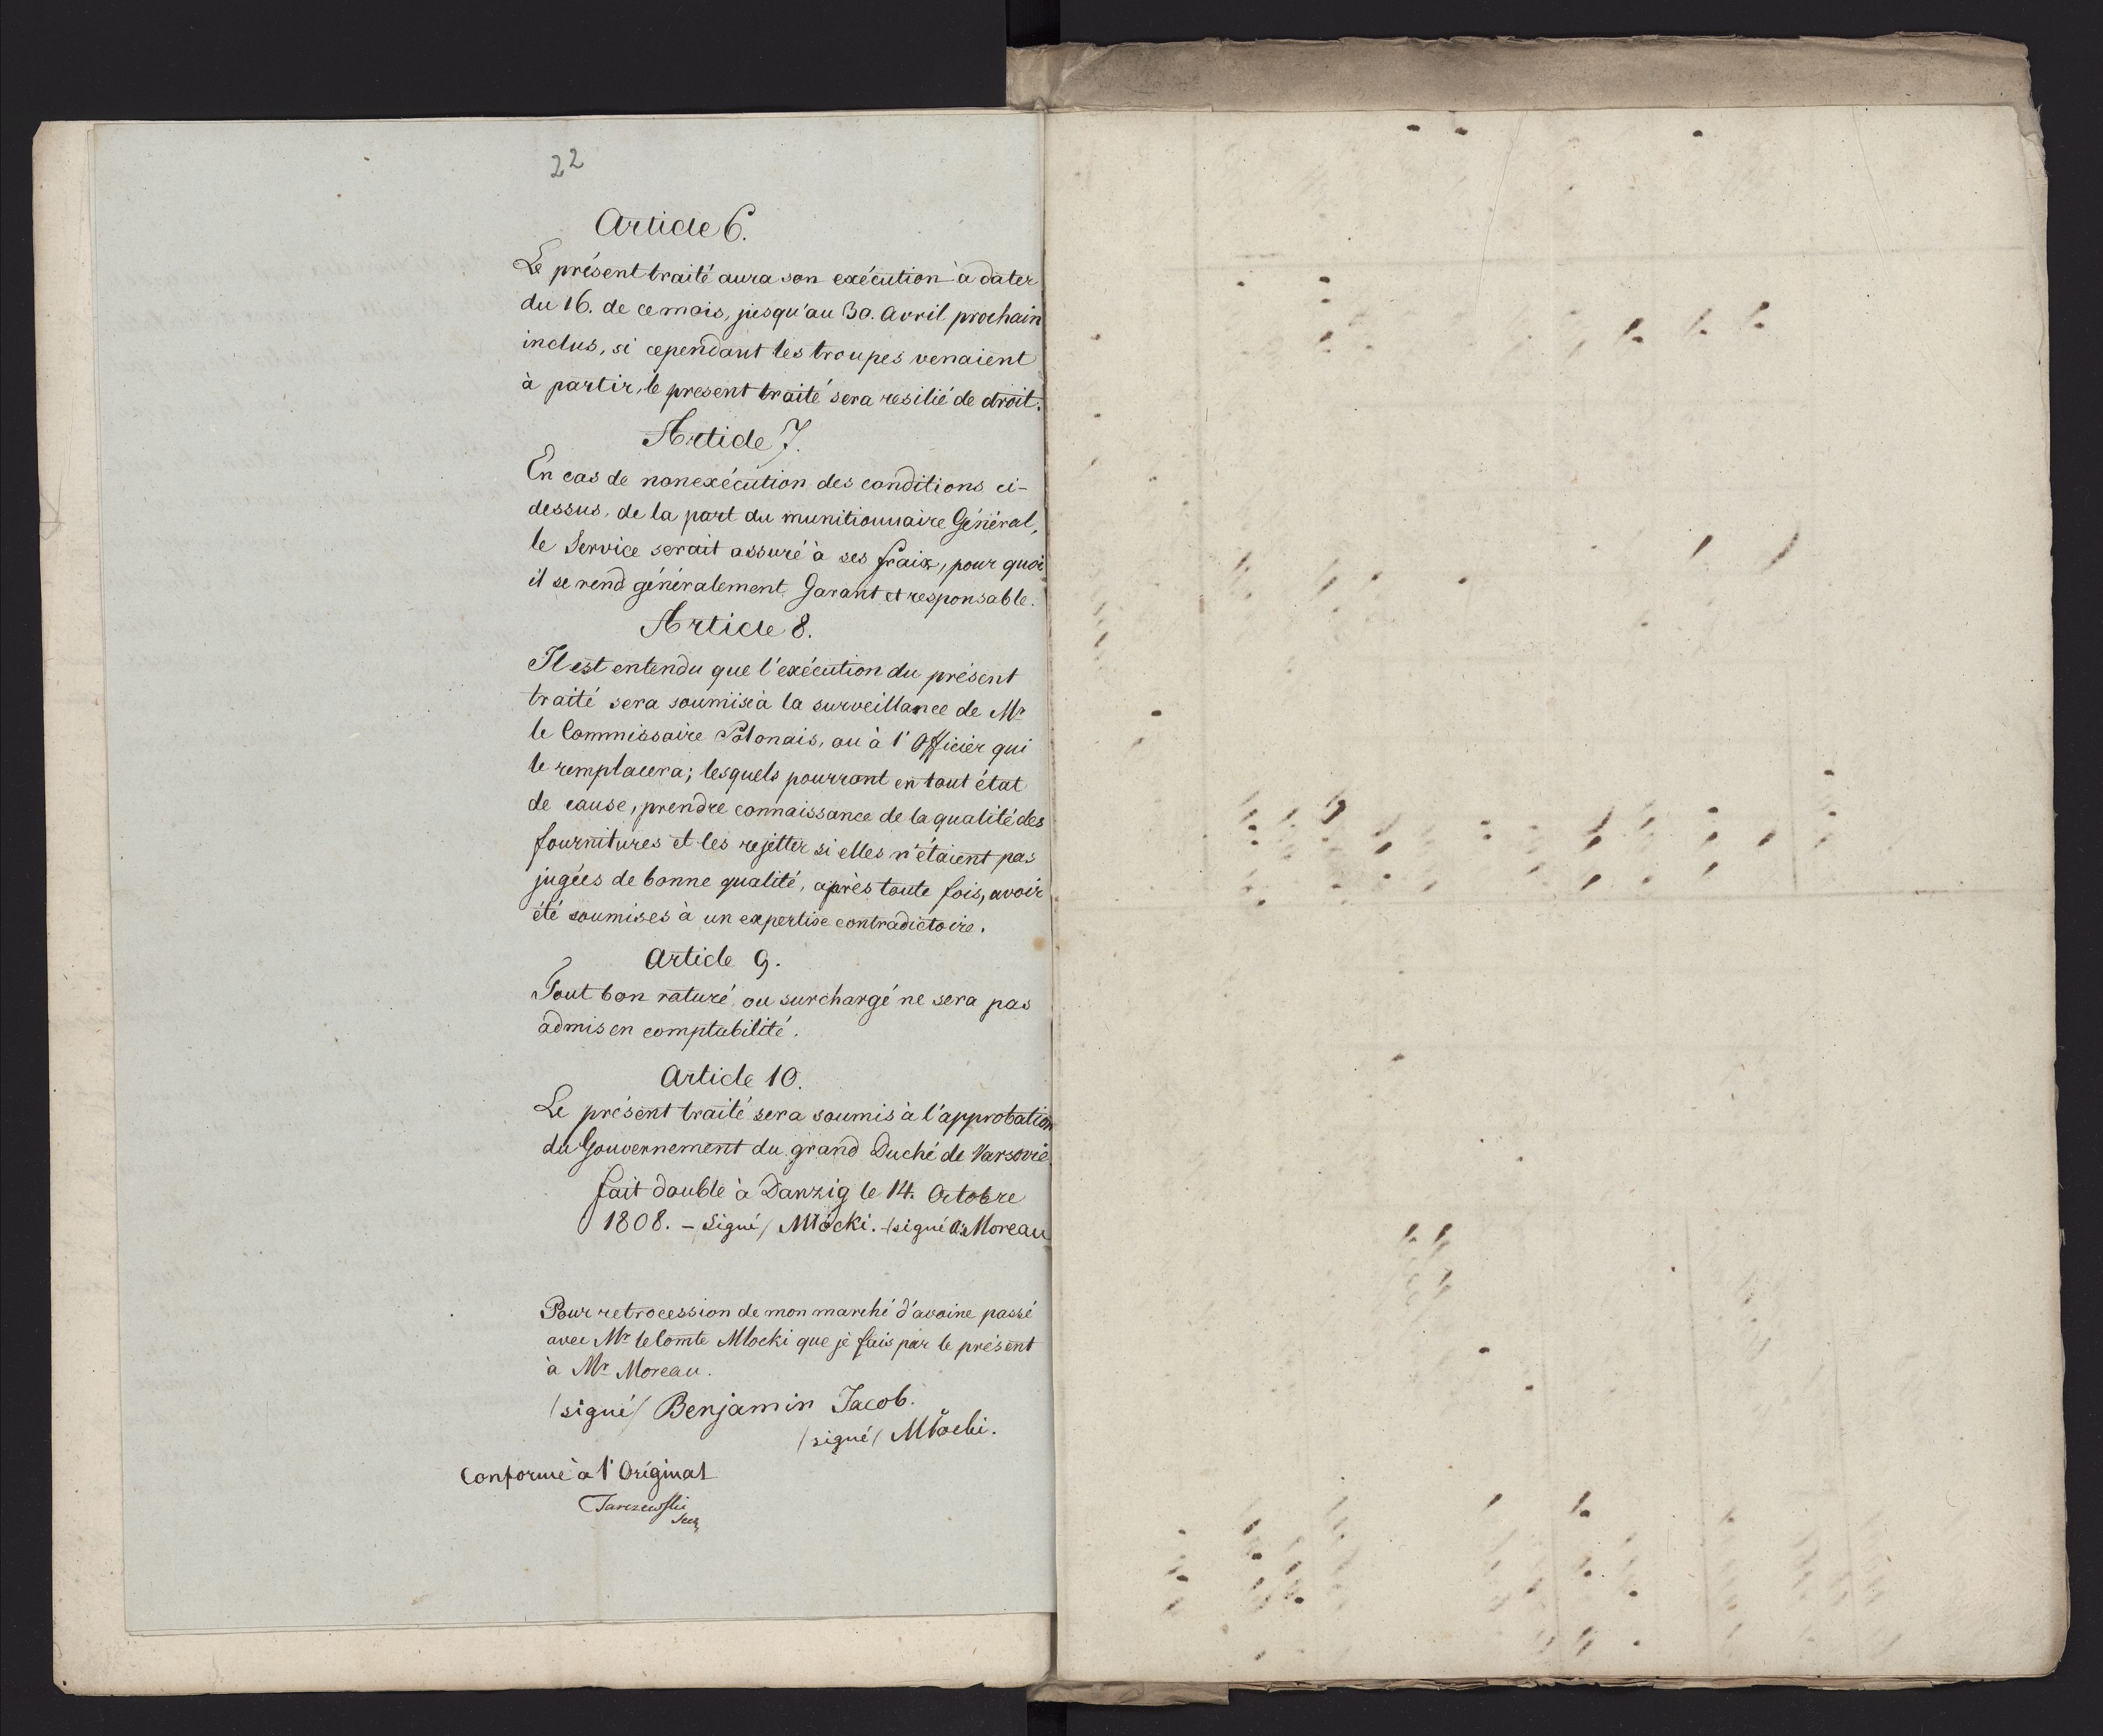 22
Article 6.
Le présent traité aura son exécution à dater
du 16. de ce mois, jusqu'au 30. Avril prochain
inclus, si cependant les troupes venaient
à partir, le present traité sera resilié de droit.
Article 7.
En cas de nonexécution des conditions ci-
dessus, de la part du munitionnaire Général,
le Service serait assuré à ses fraix, pour quoi
il se rend généralement Garant et responsable.
Article 8.
Il est entendu que l'exécution du présent
traité sera soumis à la surveillance de Mr
le Commissaire Polonais, ou à l'Officier qui
le remplacera; lesquels pourront en tout état
de cause, prendre connaissance de la qualité des
fournitures et les rejetter si elles n'étaient pas
jugées de bonne qualité, après toute fois, avoir
été soumises à un expertise contradictoire.
Article 9.
Tout bon raturé ou surchargé ne sera pas
admis en comptabilité.
Article 10.
Le présent traité sera soumis à l'approbation
du Gouvernement du grand Duché de Varsovie.
fait double à Danzig le 14. Octobre
1808. - Signé / Młocki. / signé A. Moreau
Pour retrocession de mon marché d'avoine passé
avec Mr le Comte Mlocki que je fais par le présent
à Mr Moreau.
/signé/ Benjamin Jacob.
/signé/ Młocki.
Conforme à l'Original
Tarczewski
Secr